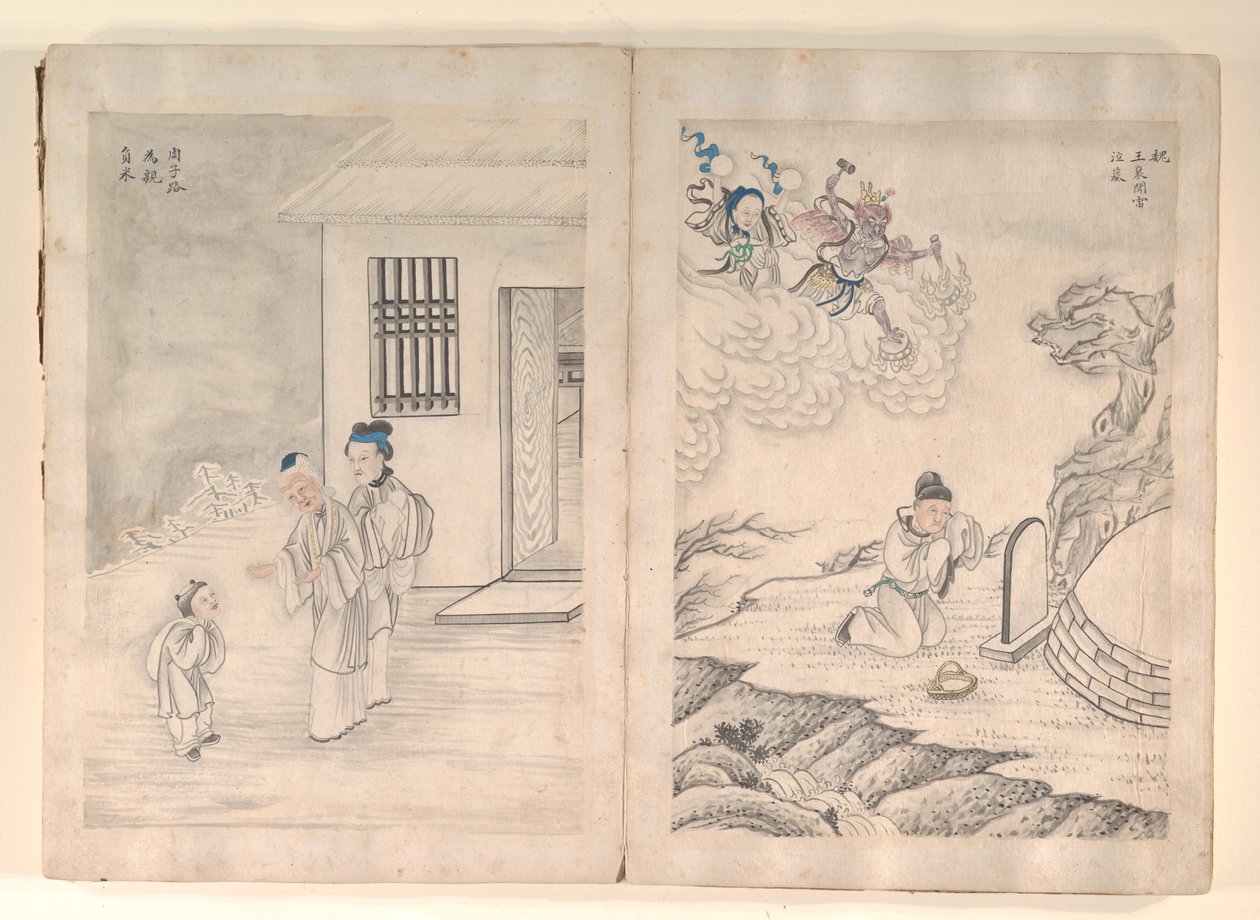 周子路
為親
負米
魏
王裒聞雷
泣墓